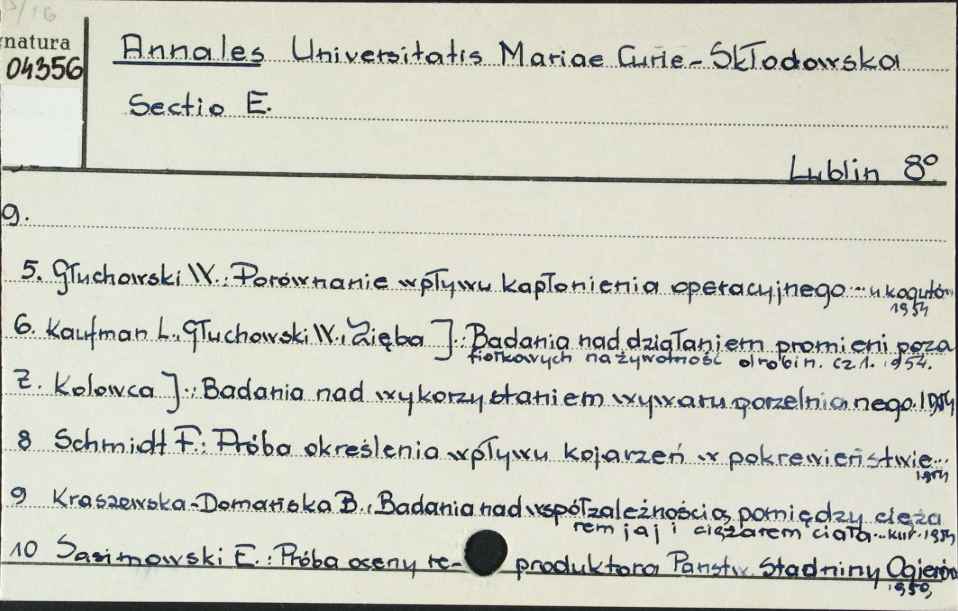 natura
04356
Annales Universitatis Mariae Curie-Skłodowska
Sectio E.
Lublin 8°
9.
5. Głuchowski W.: Porównanie wpływu kapłonienia operacyjnego... u kogutów
1954
6. Kaufman L., Głuchowski W. i Zięba J.: Badania nad działaniem promieni poza
fiołkowych na żywotność drobin. cz 1. 1954.
7. Kolowca J.: Badania nad wykorzystaniem wywaru gorzelnianego. 1954
8 Schmidt F.: Próba określenia wpływu kojarzeń w pokrewieństwie...
1954
9 Kraszewska-Domańska B.: Badania nad współzależnością pomiędzy cięża
rem jaj i ciężarem ciała... kur. 1954
10 Sasimowski E.: Próba oceny re- produktora Państw. Stadniny Ogierów
1950,